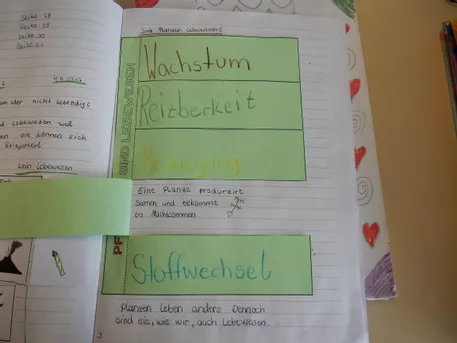 Seite 28
Seite 29
Seite 30
Seite 31
lebendig?
Lebewesen weil
die können sich
kein Lebewesen
Sind Pflanzen Lebewesen?
SIND LEBEWESEN
Wachstum
Reitzberkeit
Bewegung
Eine Pflanze produziert
Samen und bekommt
so Nachkommen.
Stoffwechsel
Pflanzen leben anders. Dennoch
sind sie, wie wir, auch Lebewesen.
3